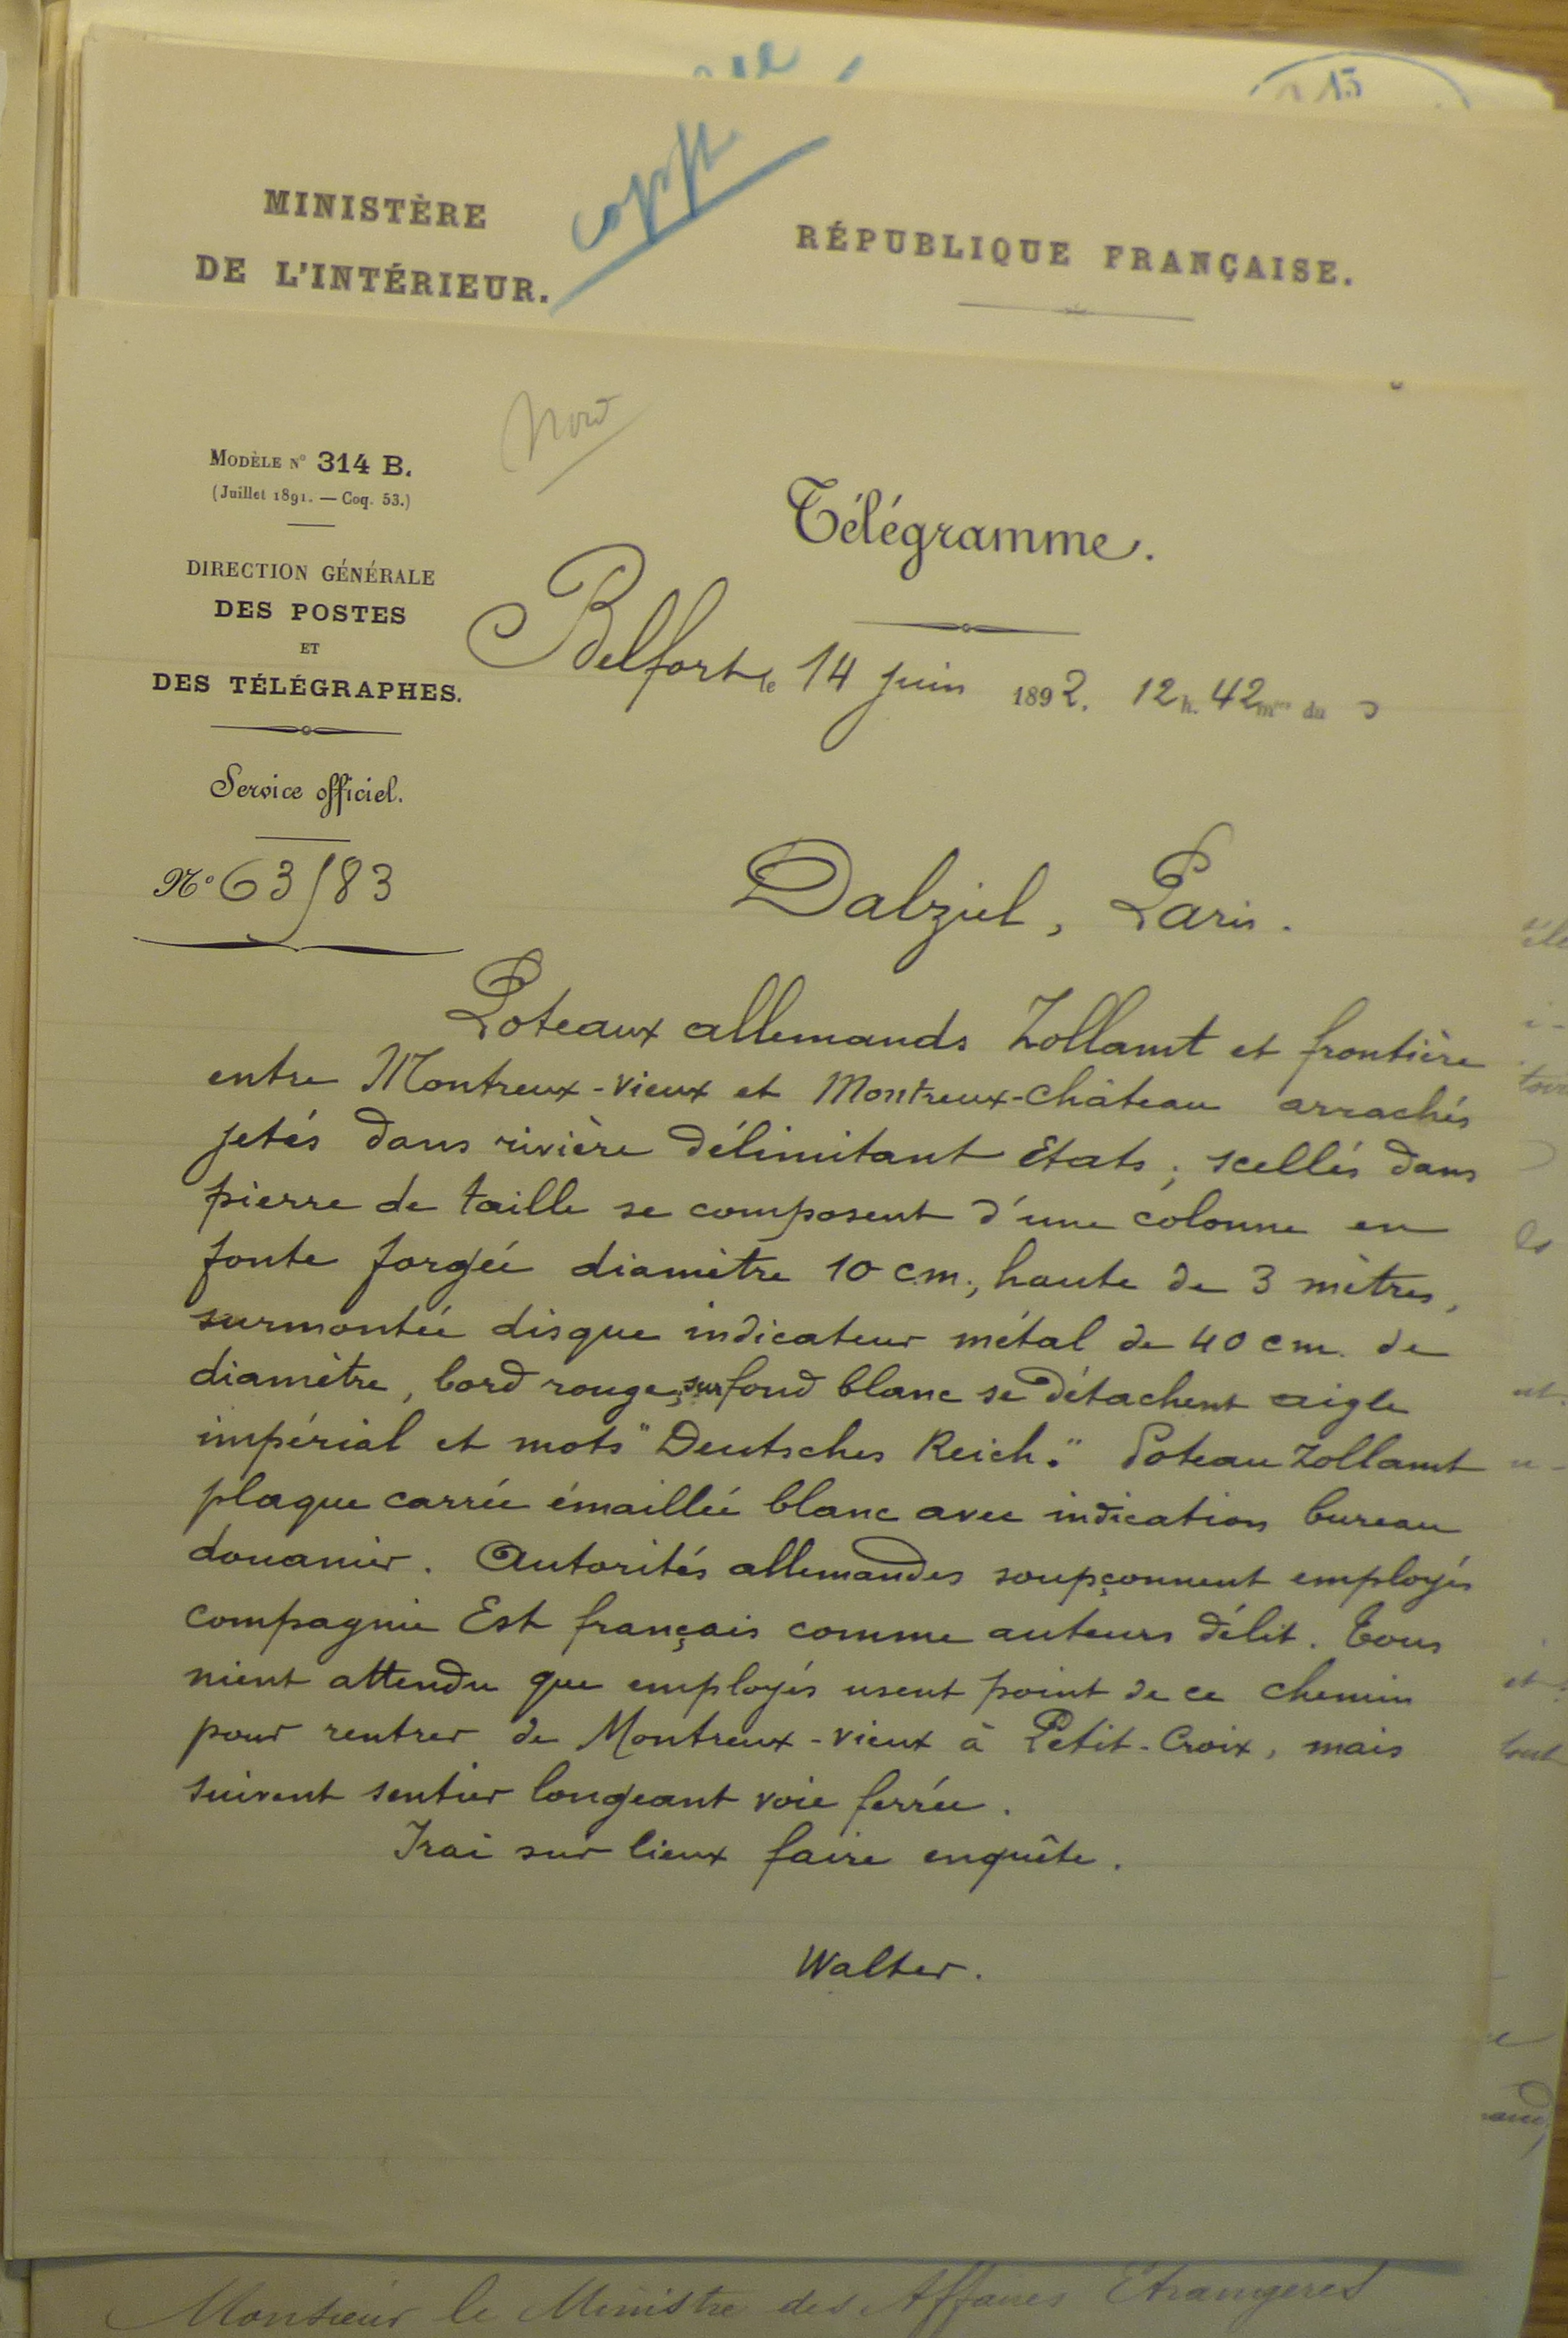 MINISTÈRE
DE L'INTÉRIEUR.
RÉPUBLIQUE FRANÇAISE.
15
MODÈLE N° 314 B.
(Juillet 1891. — Coq. 53.)
DIRECTION GÉNÉRALE
DES POSTES
ET
DES TÉLÉGRAPHES.
Service officiel.
N° 63/83
Nord
Télégramme.
Belfort le 14 juin 1892. 12 h. 42 mes du
Dalziel, Paris.
Poteaux allemands Zollamt et frontière
entre Montreux-vieux et Montreux-château arrachés
jetés dans rivière délimitant Etats; scellés dans
pierre de taille se composent d'une colonne en
fonte forgée diamètre 10 cm., haute de 3 mètres,
surmontée disque indicateur métal de 40 cm. de
diamètre, bord rouge, sur fond blanc se détachent aigle
impérial et mots "Deutsches Reich." Poteau Zollamt
plaque carrée émaillée blanc avec indication bureau
douanier. Autorités allemandes soupçonnent employés
compagnie Est français comme auteurs délit. Tous
nient attendu que employés usent point de ce chemin
pour rentrer de Montreux-vieux à Petit-Croix, mais
suivent sentier longeant voie ferrée.
Irai sur lieux faire enquête.
Walter.
Monsieur le Ministre des Affaires Etrangères